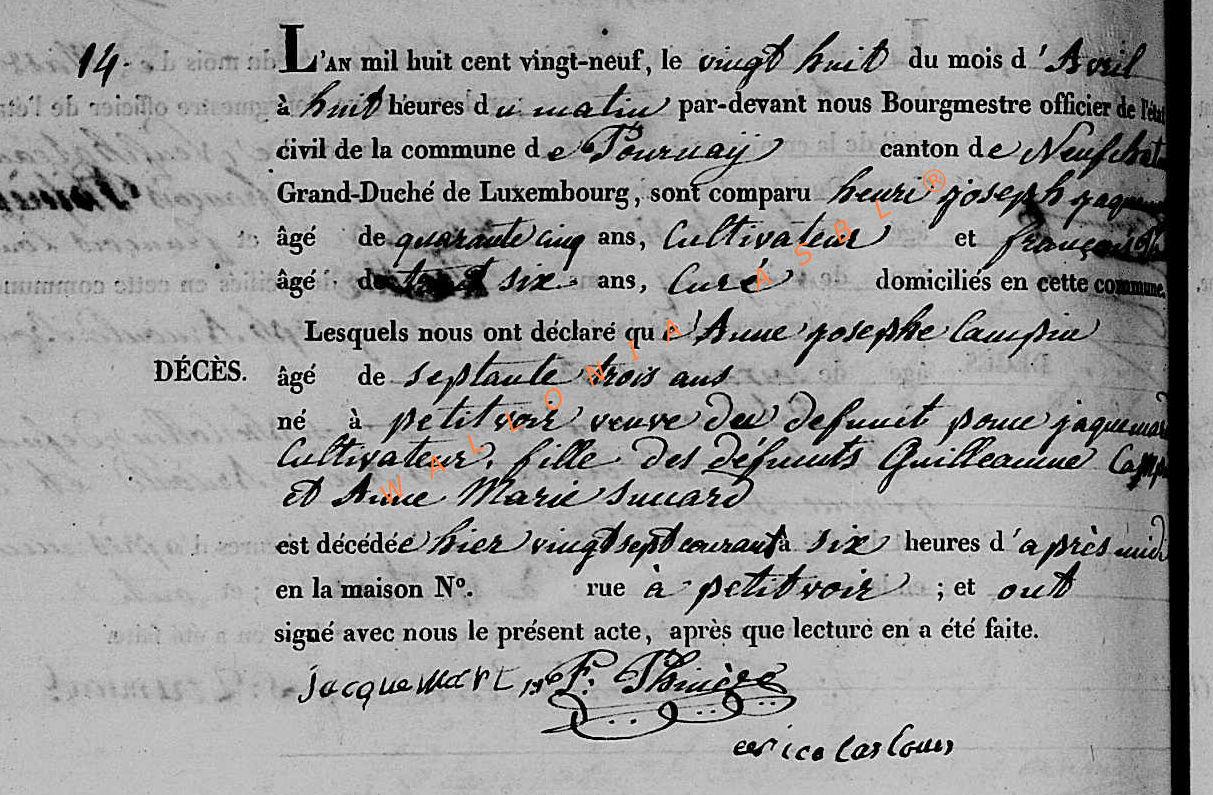 14.
L'AN mil huit cent vingt-neuf, le vingt huit du mois d'Avril
à huit heures du matin par-devant nous Bourgmestre officier de l'état
civil de la commune de Tournay canton de Neufchate
Grand-Duché de Luxembourg, sont comparu henri joseph jaquem
âgé de quarante cinq ans, Cultivateur et françois
âgé de six ans, Curé domiciliés en cette commune.
Lesquels nous ont déclaré que Anne josephe Campin
DÉCÈS.
âgé de septante trois ans
né à petitvoir veuve du defunit jaquemar
Cultivateur. fille des défunts Guilleaume
et Anne Marie
est décédée hier vingt sept courant à six heures d'après midi
en la maison N°. rue à petitvoir ; et ont
signé avec nous le présent acte, après que lecture en a été faite.
jacquemart F. Thinès
WALLONIA ASBL ®